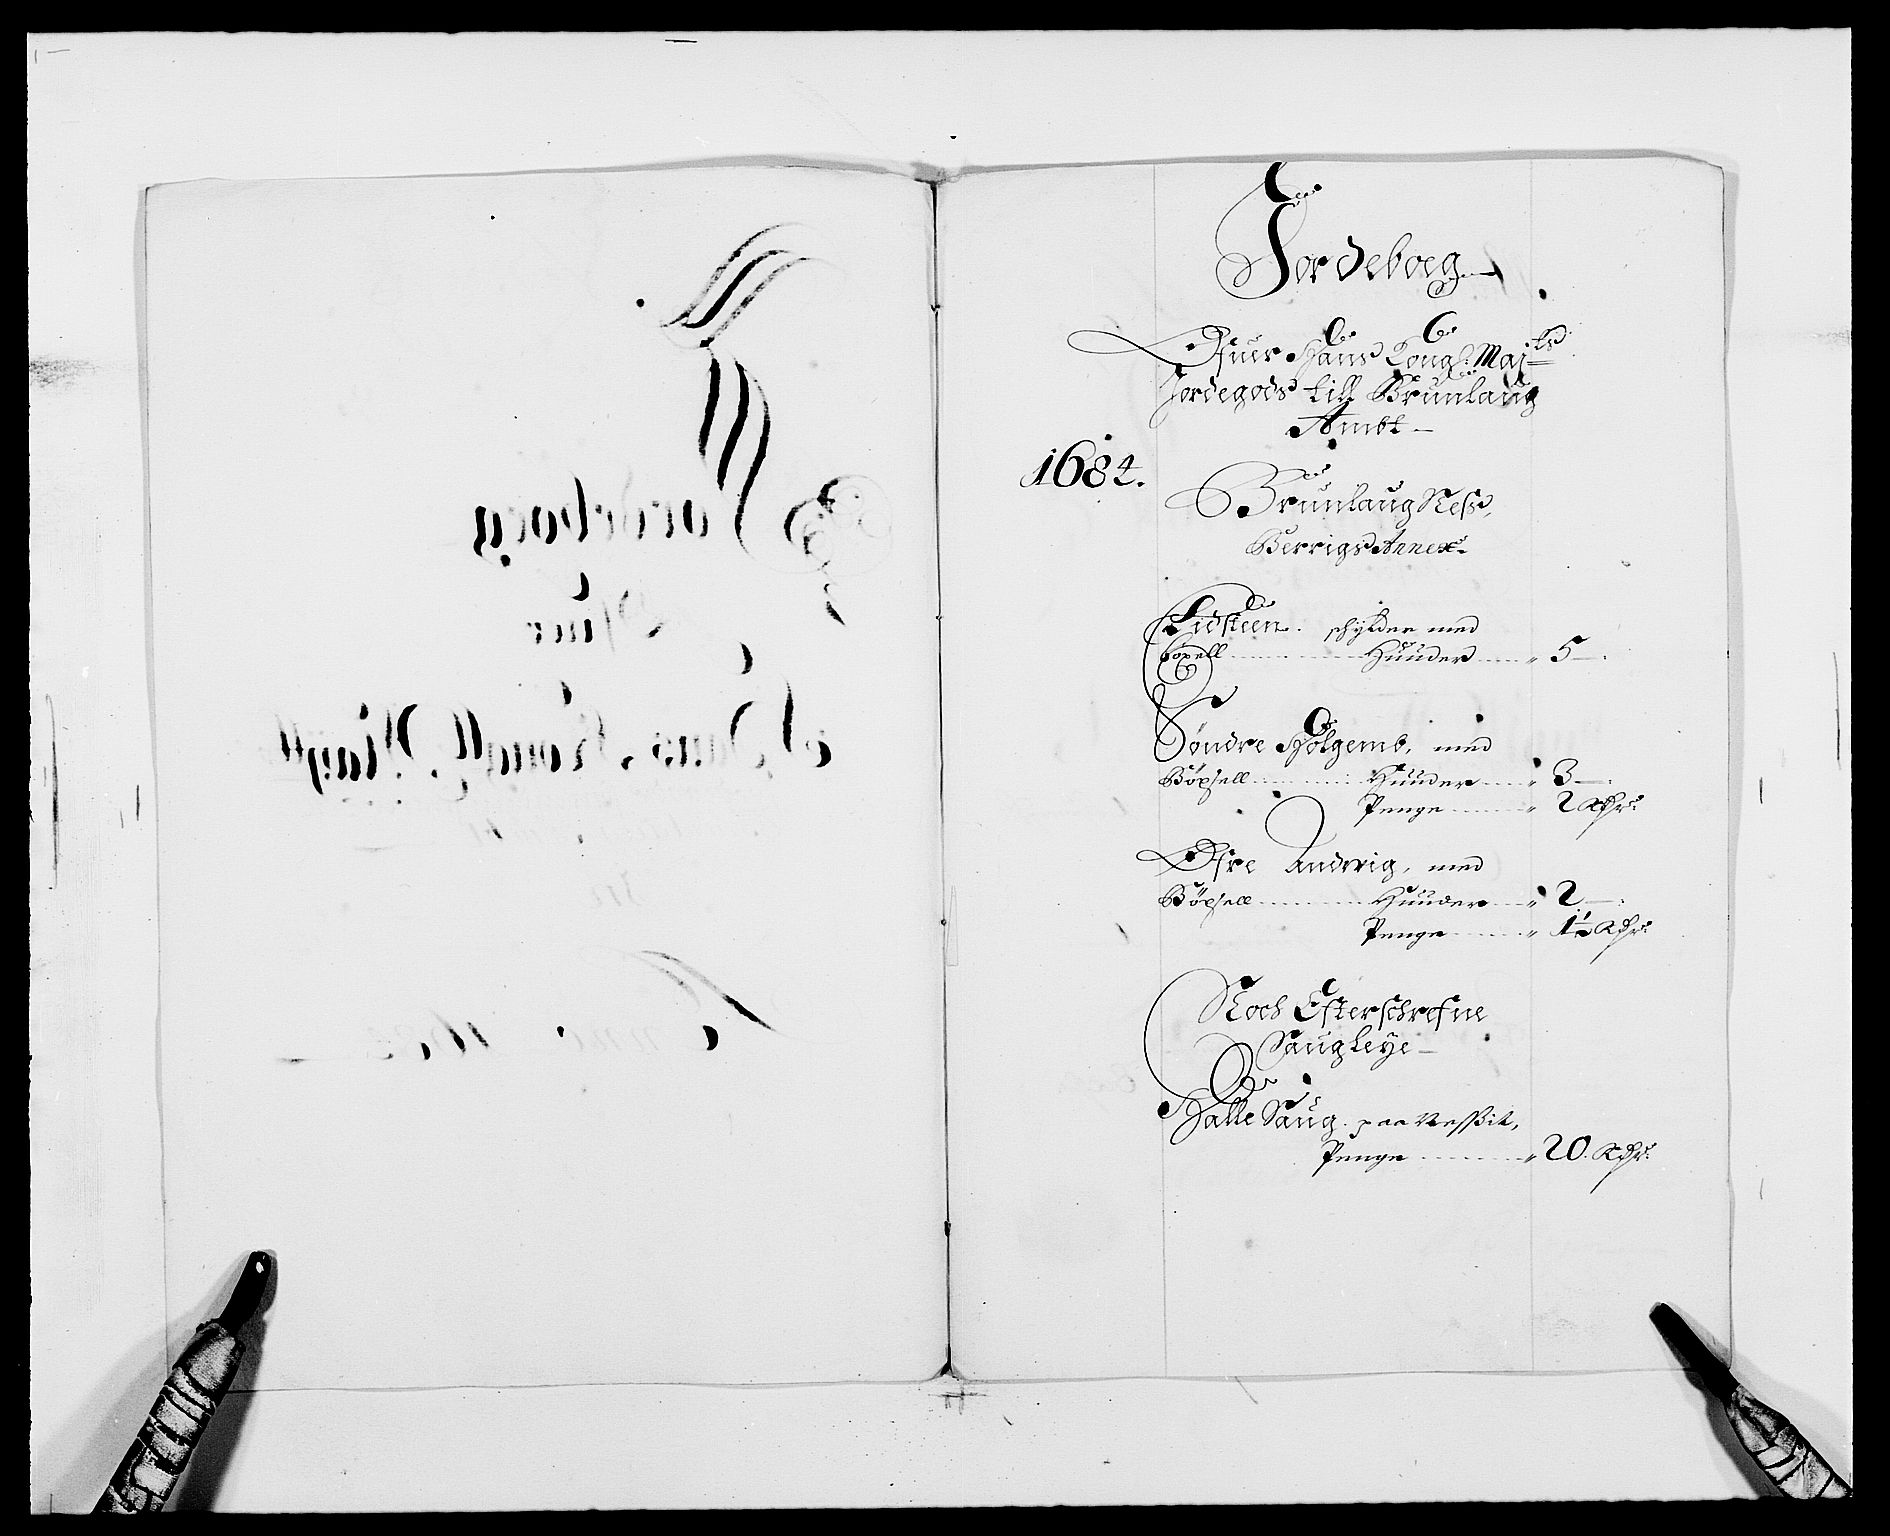 Jordeboeg
Ofuer Hans Kongl: Maj:ts
Jordegods till Brunlaug
Ambt
1684.
Brunlaug Neß,
Berrigs Annex.
Eidsteen. schylder med
Hunder 5
Søndre Hølgemb, med
Bøxsell Huuder 3
Penge 2 Rdr:
Øfre Andwig, med
Bøxsell Huuder 2
Penge 1½ Rdr:
Noch Efterschrefne
Saugleye
Halle Saug. paa
Penge 20. Rdr: